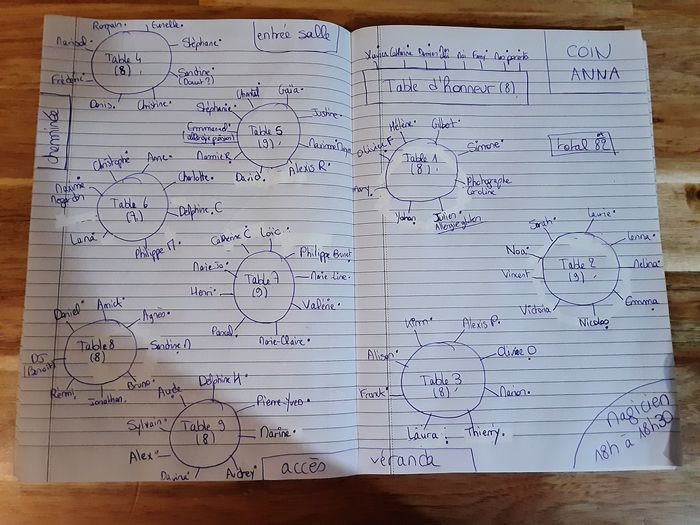 Romain.
Stéphane.
Sandrine
Table 4
(8).
Denis.
Christine.
entrée salle
cheminée
Chantal
Gaïa
Stéphanie.
Justine
Table 5
(9).
David.
Alexis R
Christophe
Anne.
Charlotte.
Maxime
Table 6
(7).
Delphine. C
Lana
Philippe M.
Catherine C
Loïc.
Philippe Brunet
Marie-Jo
Marie-Line
Table 7
(9)
Henri
Valérie.
Pascal
Marie-Claire
Daniel
Annick
Agnès
Table 8
(8)
Sandrine M
DJ
(Benoit)
Rémi
Jonathan.
Bruno
Aude
Delphine H
Pierre-Yves
Table 9
(8)
Sylvain
Marine
Alex
Audrey
accès véranda
Xavier Catherine Damien Moi Fanny
Table d'honneur (8)
COIN
ANNA
Hélène
Gilbert
Olivier F
Simone
Table 1
(8)
Photographe
Caroline
Yohan
Julien
Allergie gluten
total 82
Sarah
Laurie
Lenna
Noa
Table 2
(9).
Melina
Vincent
Victoria
Emma
Nicolas
Kim
Alexis P.
Alison
Olivier D
Table 3
(8).
Franck
Manon
Laura
Thierry.
Magicien
18h à 18h30